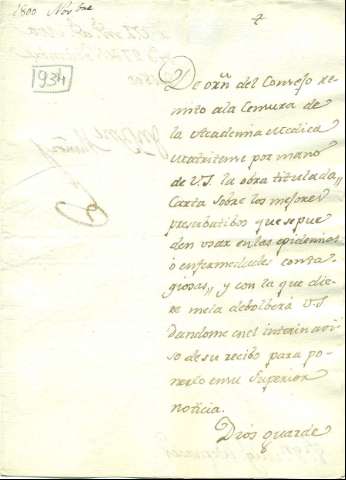 1800 Novbre
4
1934
De orn del Consejo re-
mito a la Censura de
la Academia Medica
Matritense por mano
de V.S. la obra titulada,,
Carta sobre los mejores
preserbatibos que se pue
den usar en las epidemias
ó enfermedades conta-
giosas,, y con la que die-
re me la debolberá V.S
dandome en el interin avi-
so de su recibo para po-
nerlo en su Superior
noticia.
Dios guarde